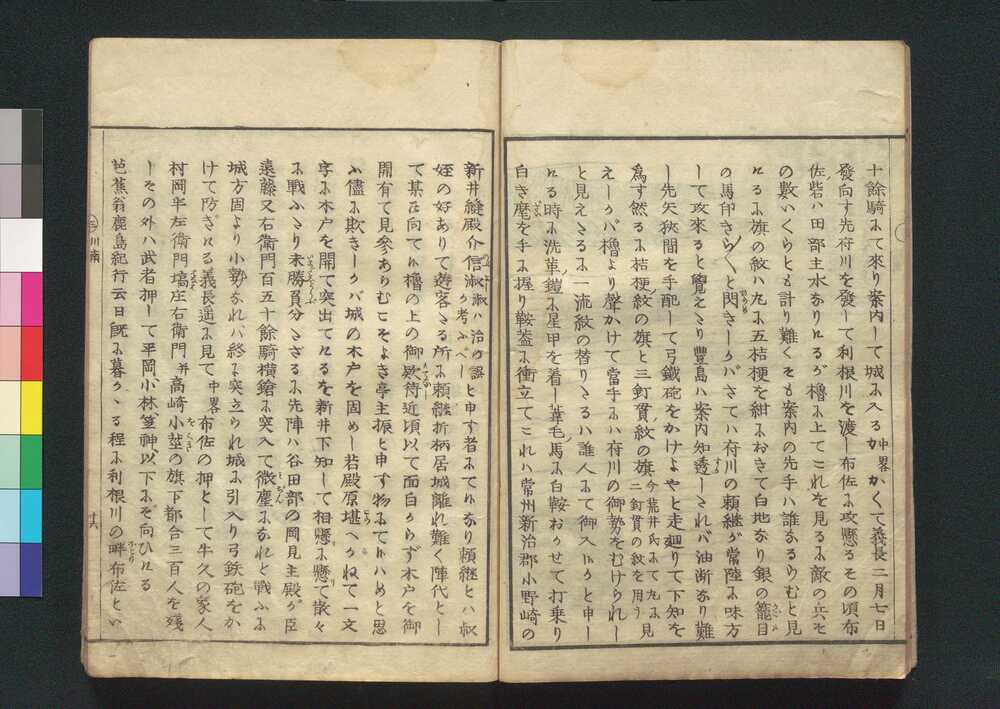 十餘騎にて來り案内して城に入るか中畧かくて義長二月七日
發向す先符川を發して利根川を渡し布佐に攻懸るその頃布
佐砦ハ田部主水なりけるが櫓に上てこれを見るに敵の兵そ
の數いくらとも計り難くそも案内の先手ハ誰なるらむと見
けるに旗の紋ハ九に五桔梗を紺におきて白地なり銀の籠目
の馬印きら〱と閃きしかバさてハ府川の頼継が常陸に味方
して攻來ると覚えたり豊島ハ案内知透しされバ油断なり難
し先矢狭間を手配して弓鐵砲をかけよやと走廻りて下知を
爲す然るに桔梗紋の旗と三釘貫紋の旗今荒井氏にて九に二釘貫の紋を用う見
えしかバ櫓より聲かけて當手に府川の御勢をむけられし
と見えたるに一流紋の替りたるハ誰人にて御入候かと申し
ける時に洗革鎧に星甲を着し葦毛馬に白鞍おかせて打乗り
白き麾を手に握り鞍葢に衝立てこれハ常州新治郡小野崎の
新井縫殿介信淑淑ハ治の誤か考ふべしと申す者にて候なり頼継とハ叔
姪の好ありて遊客たる所に頼継折柄居城離れ難く陣代とし
て某在向て候櫓の上の御欵待近頃以て面白からず木戸を御
開有て見參ありむこそよき亭主振と申す物にて候ハめと思
ふ儘に欺きしかバ城の木戸を固めし若殿原堪へかねて一文
字に木戸を開て突出てけるを新井下知して相懸に懸て散々
に戰ふたり未勝負分たざるに先陣ハ谷田部の岡見主殿が臣
遠藤又右衛門百五十餘騎横鎗に突入て微塵になれと戰ふに
城方固より小勢なれバ終に突立られ城に引入り弓鉄砲をか
けて防ぎける義長遥に見て中畧布佐の押として牛久の家人
村岡平左衛門塙庄右衛門并高崎小埜の旗下都合三百人を殘
しその外ハ武者押して平岡小林笠神以下にそ向ひける
芭蕉翁鹿島紀行云日既に暮かゝる程に利根川の畔布佐とい
川南
十六